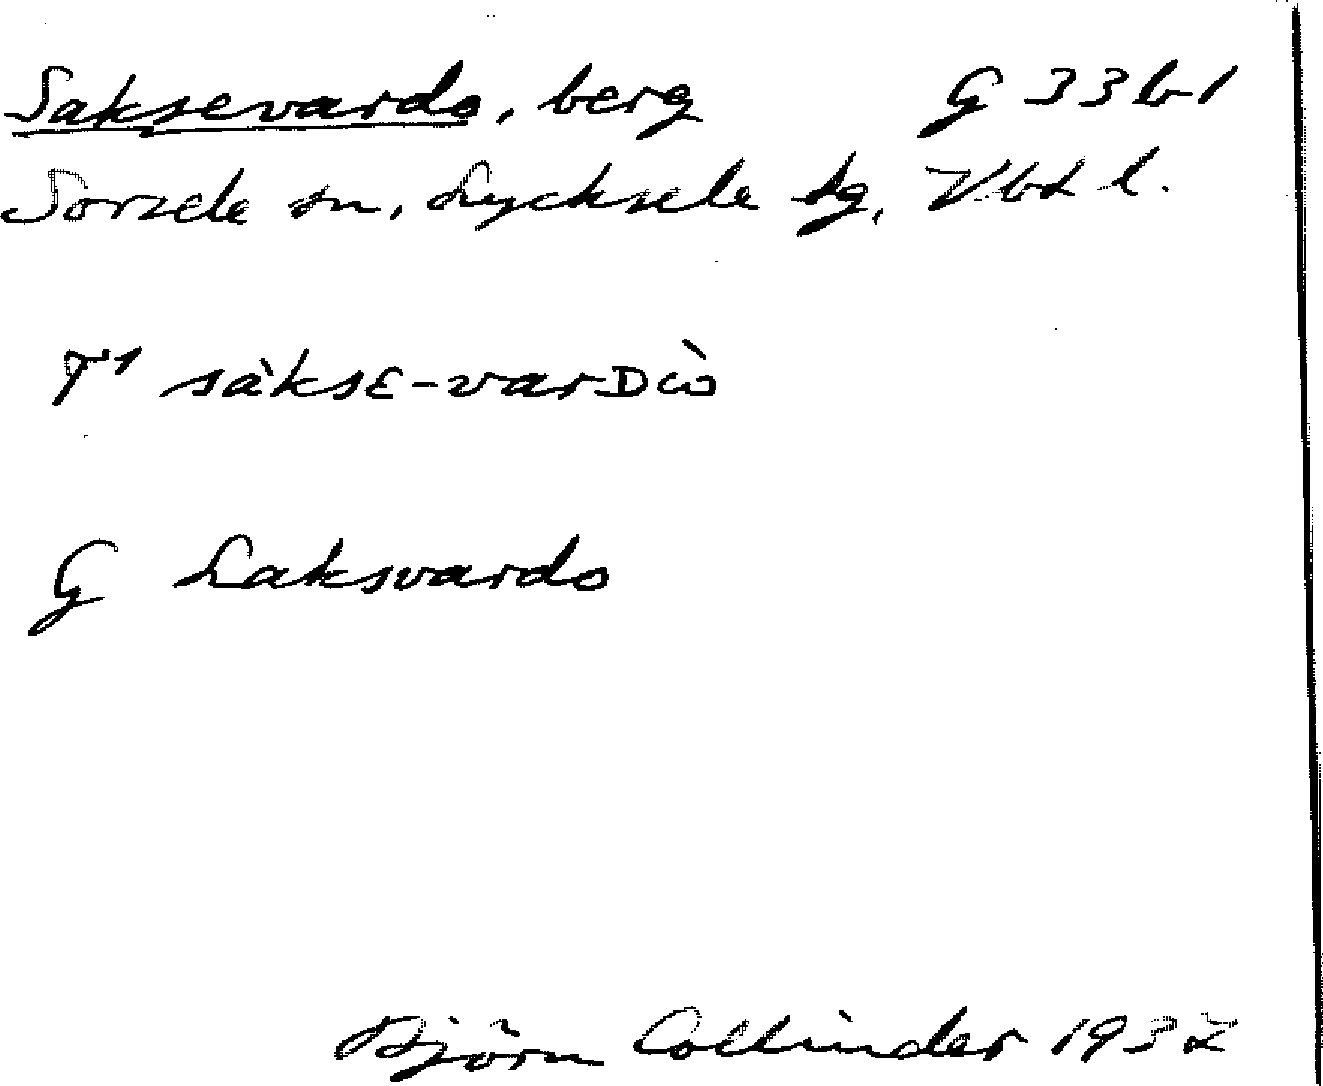 Saksevardo, berg G 33 b 1
Sorsele sn, Lycksele lg, Vbt l.
T¹ sàksᴇ-varᴅὼ
G Laksvardo
Björn Collinder 1932